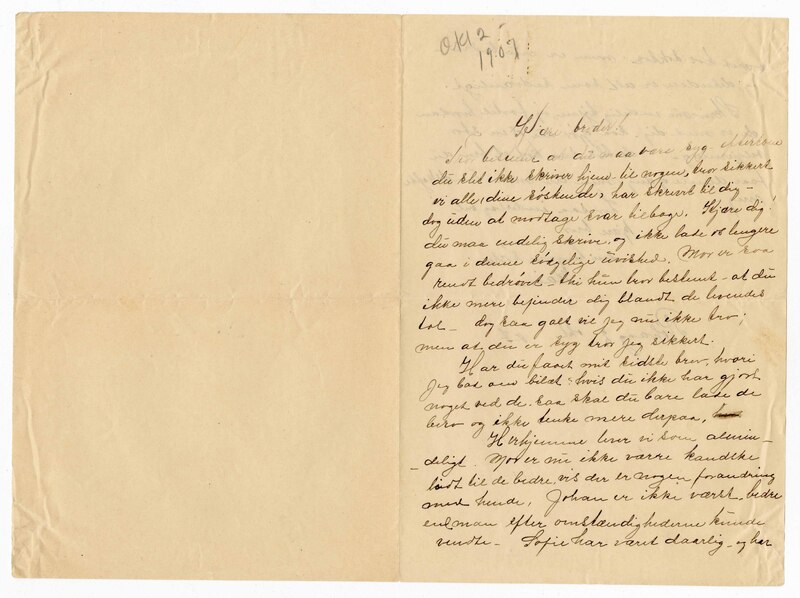 Okt 2
1907
Kjære broder!
Vi bestemt at du maa være syg eftersom
du slet ikke skriver hjem til nogen, tror sikkert
er alle dine söskende har skrevet til dig –
dog uden at modtage svar tilbage. Kjære dig!
du maa endelig skrive og ikke lade os lengere
gaa i denne sörgelige uvished. Mor er saa
rent bedrövet – thi hun tror bestemt – at du
ikke mere befinder dig blandt de levendes
tal – dog saa galt vil jeg nu ikke tro;
men at du er syg tror jeg sikkert.
Har du faaet mit sidste brev, hvori
jeg bad om bilæt; hvis du ikke har gjort
noget ved de. saa skal du bare lade de
bero og ikke tenke mere derpaa,
Herhjemme lever vi som almin-
-deligt. Mor er nu ikke værre kandske
lidt til de bedre, vis der er nogen forandring
med hende. Johan er ikke værst, bedre
end man efter omstændighederne kunde
vendte – Sofie har været daarlig – og har